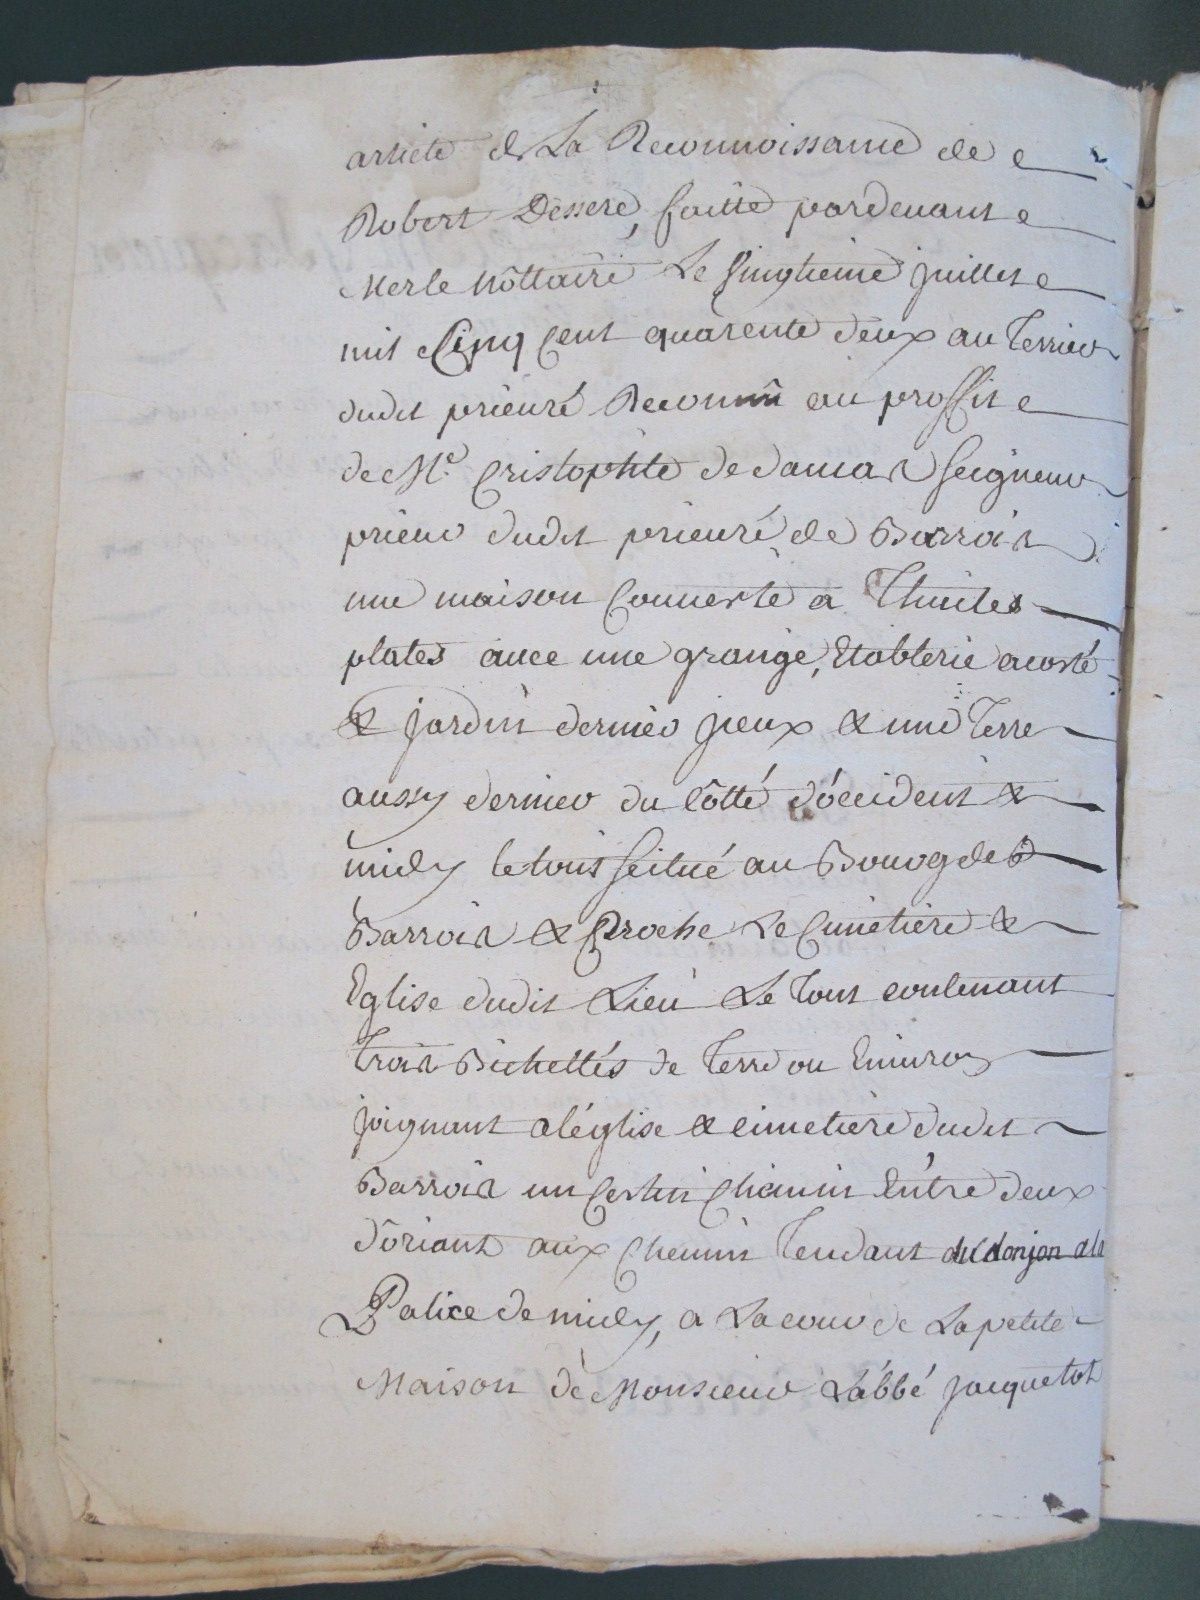 article de La Reconnoissance de
Robert Dessere, faitte pardevant
Merle Nôttaire Le Singtieme juillet
mil Cinq Cent quarente deux au Terrier
dudit prieuré Reconnû au proffit
de Mre. Cristophle de damas Seigneur
prieur dudit prieuré de Barrois
une maison Couverte a Thuiles
plates avec une grange, Etablerie acosté
& jardin dernier jceux & une Terre
aussy dernier du Côtté d'óccident &
midy le tout scitué au Bourg de
Barrois & Proche Le Cimetiere &
Eglise dudit Lieu Le Tout contenant
Trois Bichettés de Terre ou Environ
joignant aléglise & cimetiere dudit
Barrois un Certin Chemin Entre deux
d'oriant aux Chemin Tendant du donjon ala
Palice de midy, a La cour de La petite
Maison de Monsieur L'ábbé jacquetot